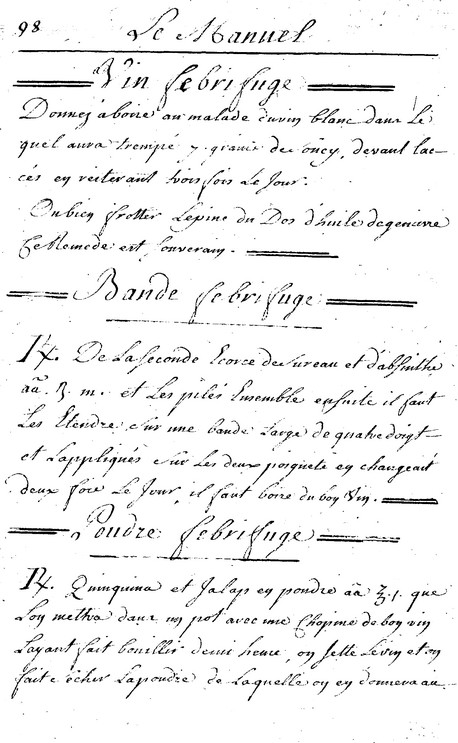 98 Le Manuel
Vin febrifuge
Donnez a boire au malade du vin blanc dans Le
quel aura trempé 7. grains de, devant lac-
cés en reiterant trois fois Le Jour.
Oubien frotter Lepine du Dos d'huile degenevre
Ce Remede est souverain.
Bande febrifuge
Rx. De La seconde Ecorce de Sureau et d'absinthe
aã. ʒ. m. et Les pilés Ensemble ensuite il faut
Les Etendre sur une bande Large de quatre doigt
et L'appliqués sur Les deux poignets en changeant
deux fois Le Jour, il faut boire du bon Vin.
Poudre febrifuge
Rx. Quinquina et Jalap en poudre aã ʒ. j. que
Lon mettra dans un pot avec une Chopine de bon vin
Layant fait bouillir demi heure, on Jette Le vin et on
fait secher Lapoudre de Laquelle on en donnera au